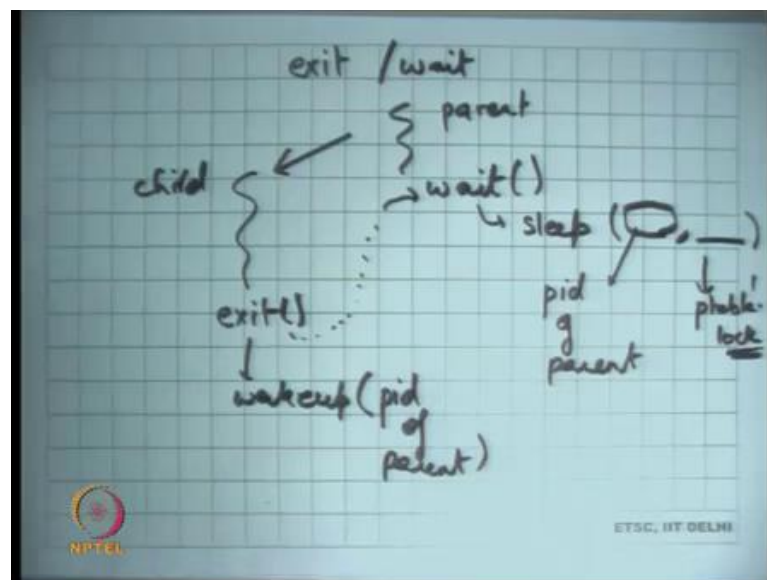 exit / wait
parent
child
wait()
sleep ( , )
pid
of
parent
ptable.
lock
exit()
wakeup (pid
of
parent)
NPTEL
ETSC, IIT DELHI